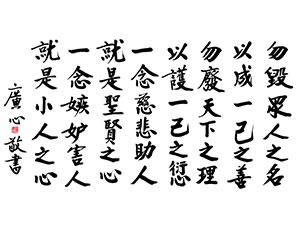 勿毀眾人之名
以成一己之善
勿廢天下之理
以護一己之愆
一念慈悲助人
就是聖賢之心
一念嫉妒害人
就是小人之心
廣心敬書